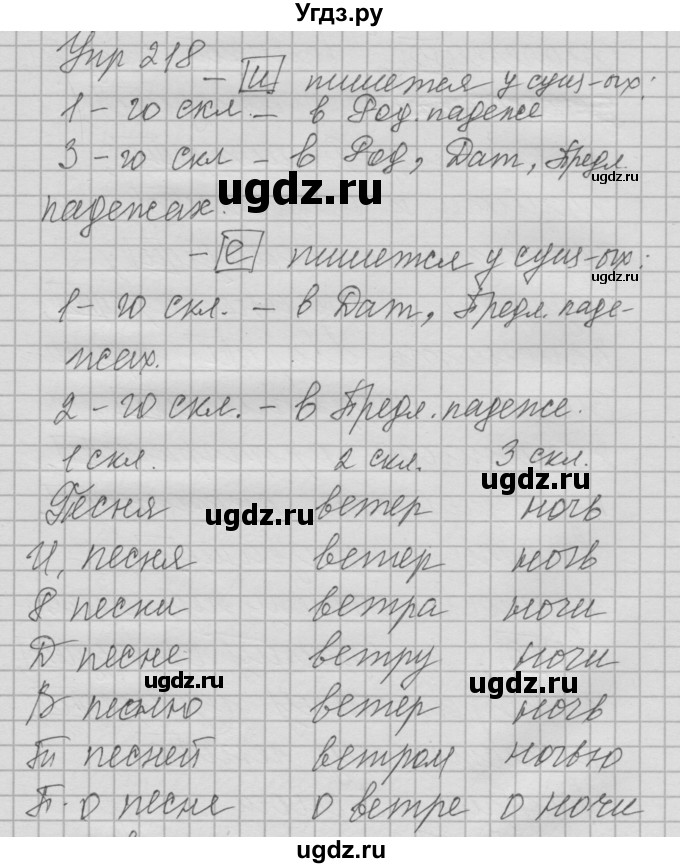 Угдз.ру
Упр 218
– и пишется у сущ-ых:
1-го скл. – в Род. падеже
3-го скл – в Род, Дат, Предл
ugdz.ru
ugdz.ru
падежах.
– е пишется у сущ-ых:
ugdz.ru
1-го скл. – в Дат, Предл. паде-
жах.
2-го скл. – в Предл. падеже.
1 скл. 2 скл. 3 скл.
ugdz.ru
Песня ветер ночь
ugdz.ru
И, песня ветер ночь
Р песни ветра ночи
Д песне ветру ночи
ugdz.ru ugdz.ru
В песню ветер ночь
Тв песней ветром ночью
П. о песне о ветре о ночи
ugdz.ru ugdz.ru